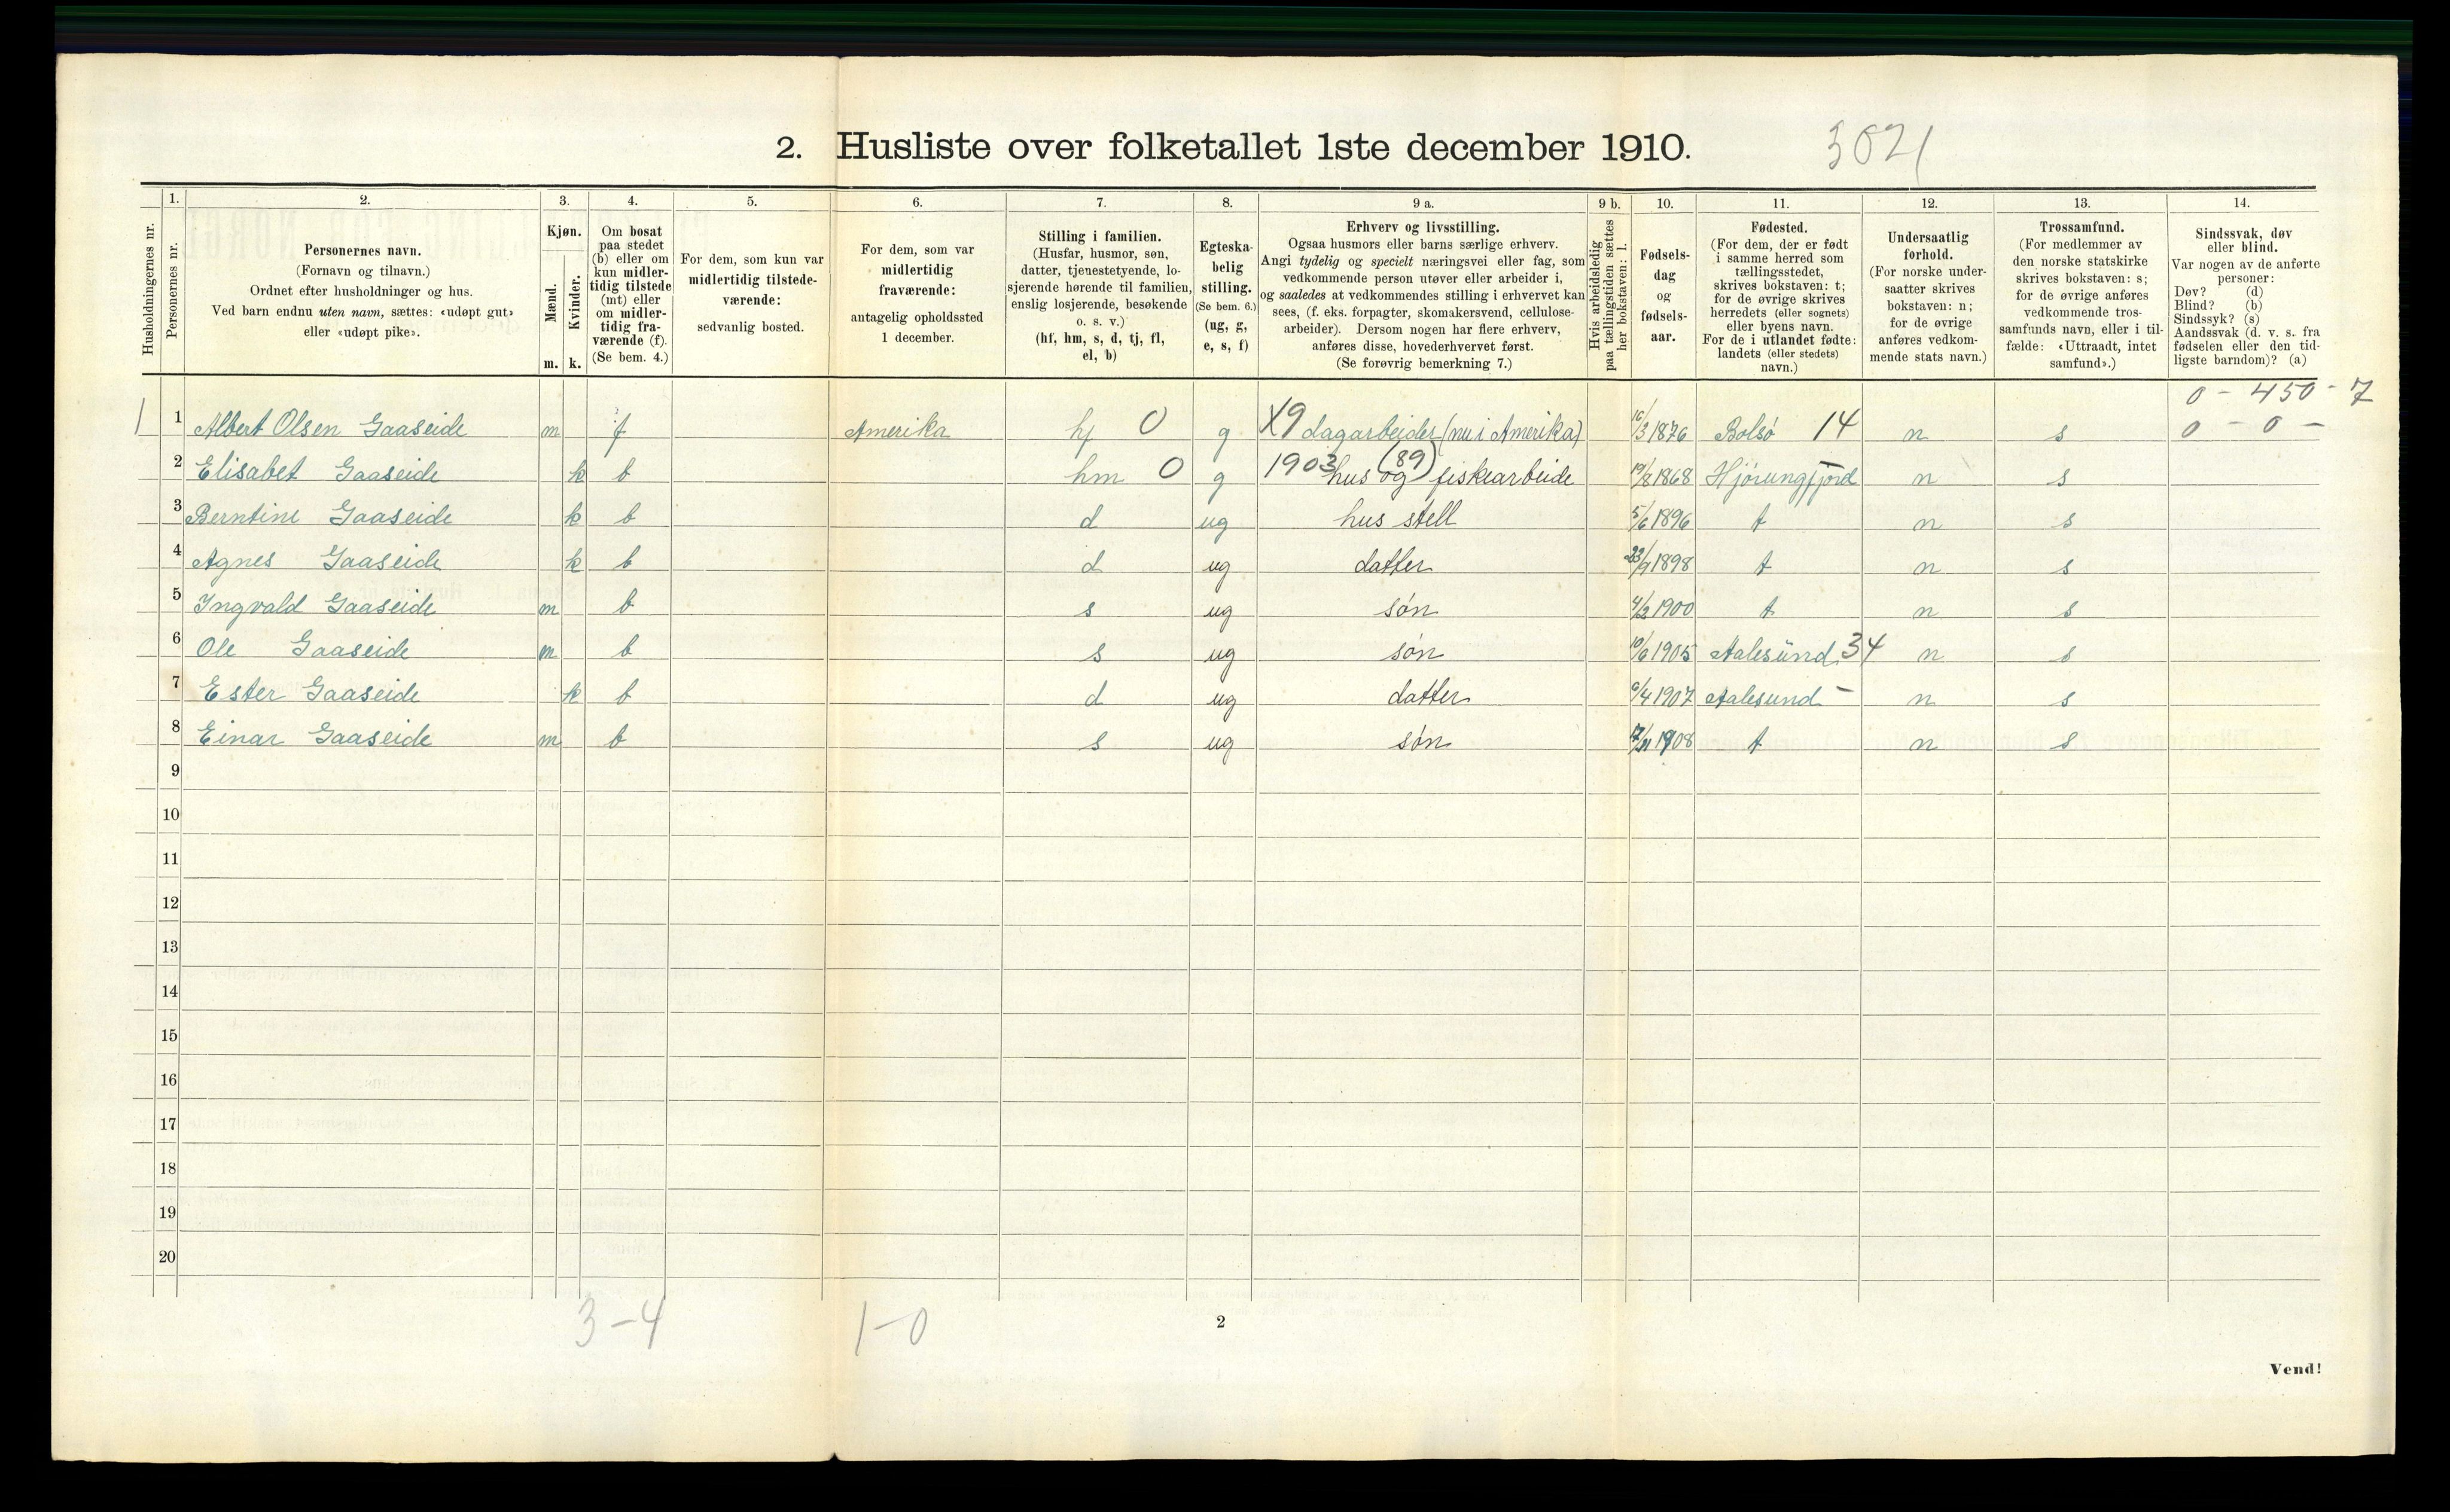 2. Husliste over folketallet 1ste december 1910.
3021
Husholdningernes nr.
1.
Personernes nr.
2.
Personernes navn.
(Fornavn og tilnavn.)
Ordnet efter husholdninger og hus.
Ved barn endnu uten navn, sættes: «udøpt gut»
eller «udøpt pike».
3.
Kjøn.
Mænd.
Kvinder.
m. k.
4.
Om bosat
paa stedet
(b) eller om
kun midler-
tidig tilstede
(mt) eller
om midler-
tidig fra-
værende (f).
(Se bem. 4.)
5.
For dem, som kun var
midlertidig tilstede-
værende:
sedvanlig bosted.
6.
For dem, som var
midlertidig
fraværende:
antagelig opholdssted
1 december.
7.
Stilling i familien.
(Husfar, husmor, søn,
datter, tjenestetyende, lo-
sjerende hørende til familien,
enslig losjerende, besøkende
o. s. v.)
(hf, hm, s, d, tj, fl,
el, b)
8.
Egteska-
belig
stilling.
(Se bem. 6.)
(ug, g,
e, s, f)
9 a.
Erhverv og livsstilling.
Ogsaa husmors eller barns særlige erhverv.
Angi tydelig og specielt næringsvei eller fag, som
vedkommende person utøver eller arbeider i,
og saaledes at vedkommendes stilling i erhvervet kan
sees, (f. eks. forpagter, skomakersvend, cellulose-
arbeider). Dersom nogen har flere erhverv,
anføres disse, hovederhvervet først.
(Se forøvrig bemerkning 7.)
9 b.
Hvis arbeidsledig
paa tællingstiden sættes
her bokstaven: l.
10.
Fødsels-
dag
og
fødsels-
aar.
11.
Fødested.
(For dem, der er født
i samme herred som
tællingsstedet,
skrives bokstaven: t;
for de øvrige skrives
herredets (eller sognets)
eller byens navn.
For de i utlandet fødte:
landets (eller stedets)
navn.)
12.
Undersaatlig
forhold.
(For norske under-
saatter skrives
bokstaven: n;
for de øvrige
anføres vedkom-
mende stats navn.)
13.
Trossamfund.
(For medlemmer av
den norske statskirke
skrives bokstaven: s;
for de øvrige anføres
vedkommende tros-
samfunds navn, eller i til-
fælde: «Uttraadt, intet
samfund».)
14.
Sindssvak, døv
eller blind.
Var nogen av de anførte
personer:
Døv? (d)
Blind? (b)
Sindssyk? (s)
Aandssvak (d. v. s. fra
fødselen eller den tid-
ligste barndom)? (a)
0 - 450 - 7
1 1 Albert Olsen Gaaseide m f Amerika hf 0 g X9 dagarbeider (nu i Amerika) 16/3 1876 Bolsø 14 n s 0 - 0 -
2 Elisabet Gaaseide k b hm 0 g 1903 hus og (89) fiskearbeide 19/8 1868 Hjørungfjord n s
3 Berntine Gaaseide k b d ug hus stell 5/6 1896 t n s
4 Agnes Gaaseide k b d ug datter 23/9 1898 t n s
5 Ingvald Gaaseide m b s ug søn 4/2 1900 t n s
6 Ole Gaaseide m b s ug søn 10/6 1905 Aalesund 34 n s
7 Ester Gaaseide k b d ug datter 6/4 1907 Aalesund - n s
8 Einar Gaaseide m b s ug søn 17/11 1908 t n s
9
10
11
12
13
14
15
16
17
18
19
20
3-4 1-0
2
Vend!